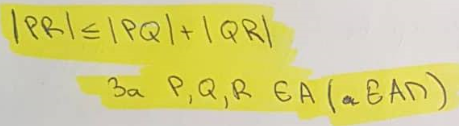 |PR| ≤ |PQ| + |QR|
За P, Q, R ∈ A